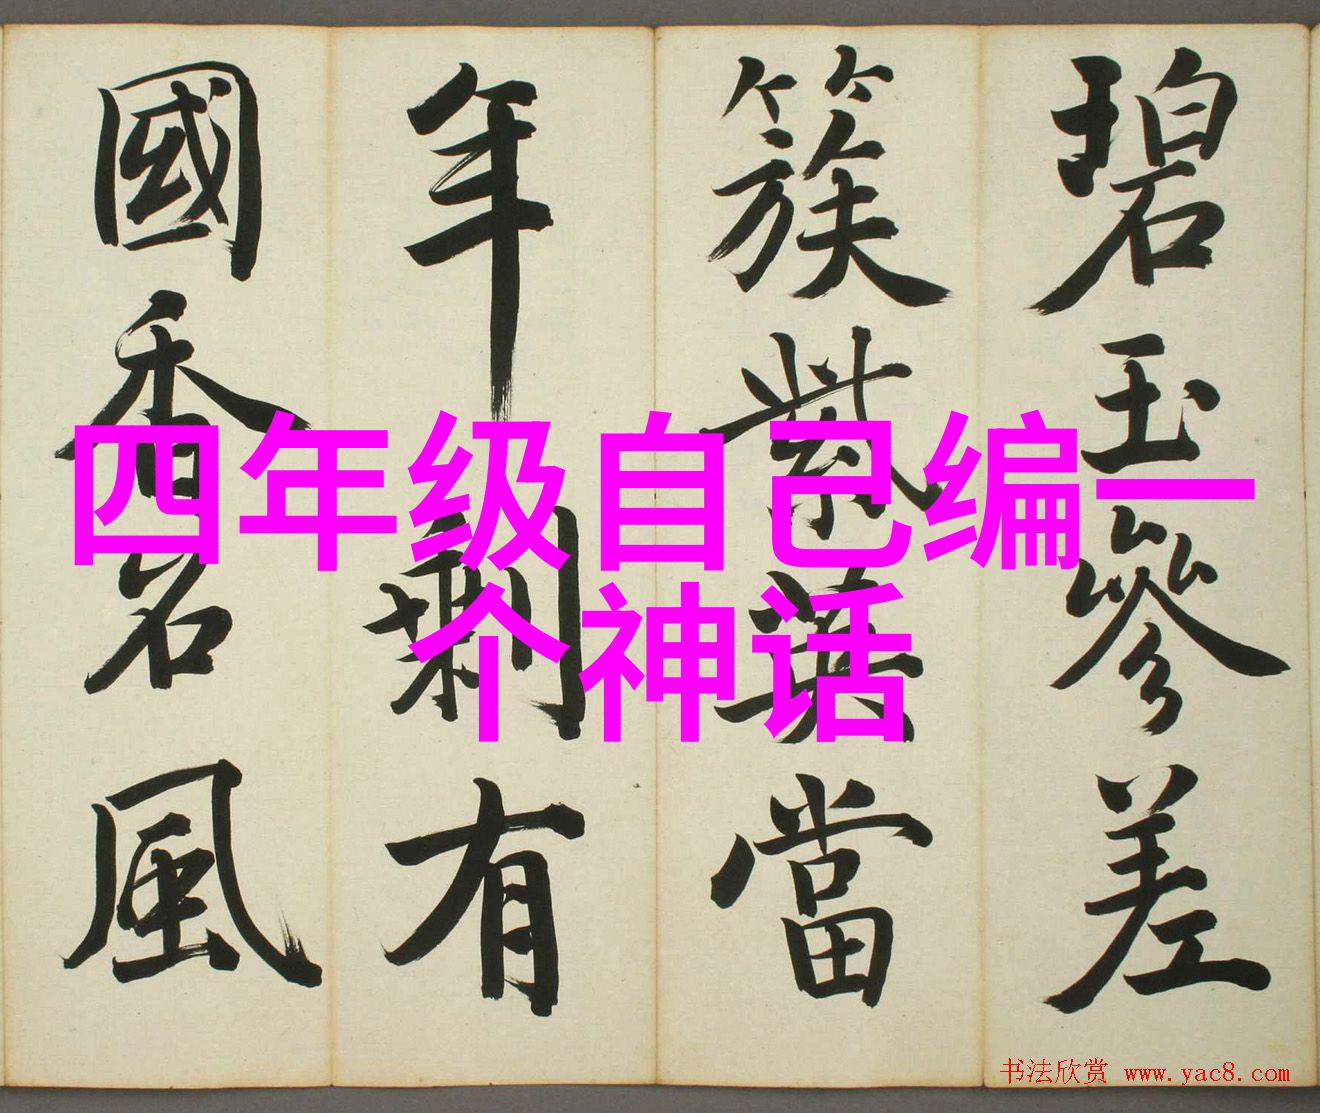 碧玉參差
簇紫英當
年剩有
國香名風
四年级自己编一
个神话
书法欣赏 www.yac8.com